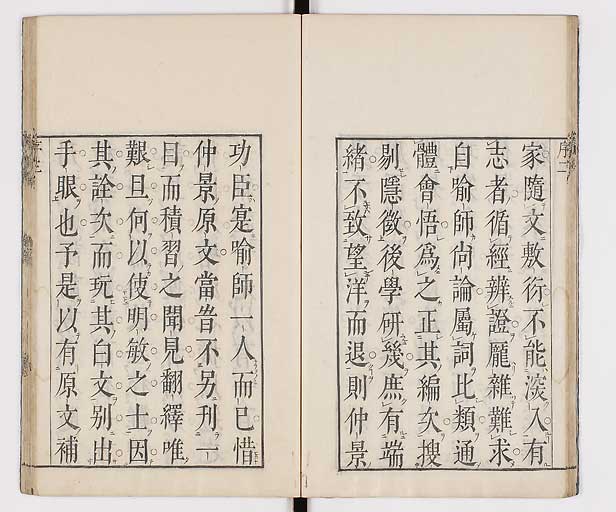 家隨文敷衍不能深入有
志者循經辨證厖雜難求
自喻師尙論屬詞比類通
體會悟爲之正其編次搜
剔隱微後學硏幾庶有端
緒不致望洋而退則仲景
功臣寔喻師一人而已惜
仲景原文當旹不另刊一
目而積習之聞見翻繹唯
艱且何以使明敏之士因
其詮次而玩其白文别出
手眼也予是以有原文補
序二